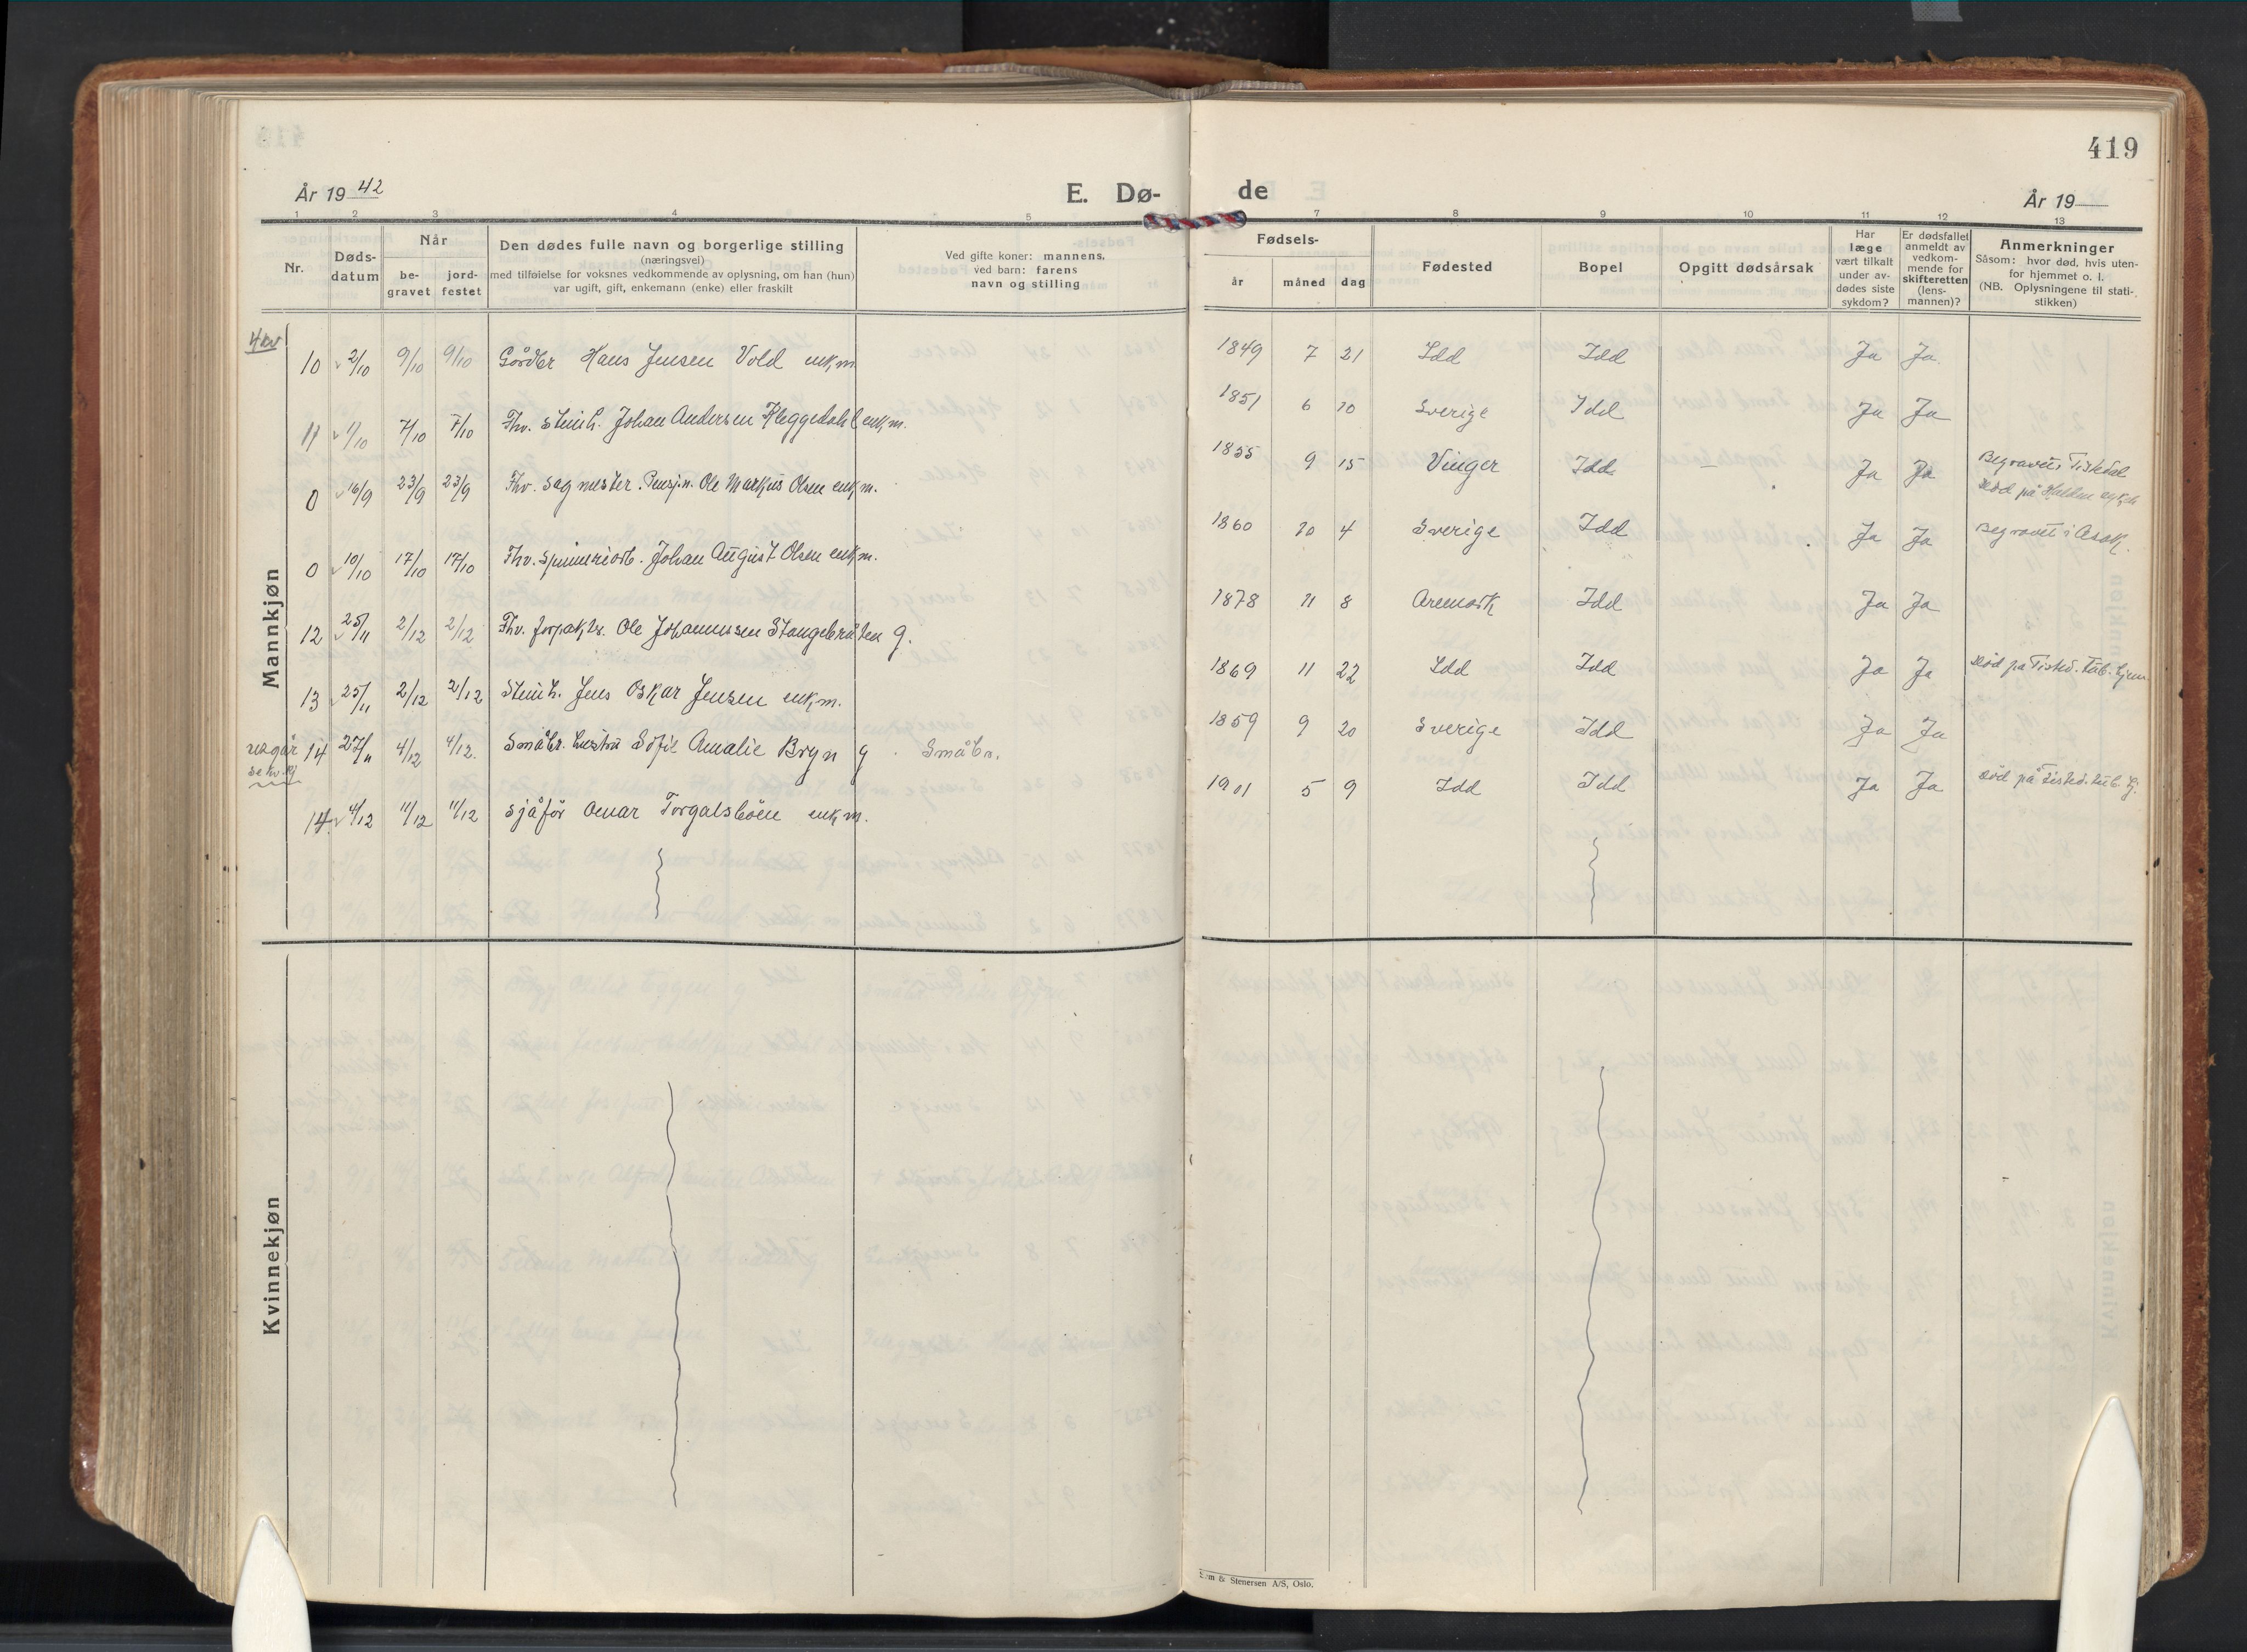 419
År 19 42
E. Dø-
de
År 19
1 2 3 4 5 7 8 9 10 11 12 13
Nr.
Døds-
datum
Når
be-
gravet
jord-
festet
Den dødes fulle navn og borgerlige stilling
(næringsvei)
med tilføielse for voksnes vedkommende av oplysning, om han (hun)
var ugift, gift, enkemann (enke) eller fraskilt
Ved gifte koner: mannens,
ved barn: farens
navn og stilling
Fødsels-
år måned dag
Fødested
Bopel
Opgitt dødsårsak
Har
læge
vært tilkalt
under av-
dødes siste
sykdom?
Er dødsfallet
anmeldt av
vedkom-
mende for
skifteretten
(lens-
mannen)?
Anmerkninger
Såsom: hvor død, hvis uten-
for hjemmet o. l.
(NB. Oplysningene til stati-
stikken)
Mannkjøn
10 2/10 9/10 9/10 Gårdbr Hans Jensen Vold enkm 1849 7 21 Idd Idd Ja Ja
11 1/10 7/10 7/10 Fhv. Stenh. Johan Andersen Kleggedahl enkm. 1851 6 10 Sverige Idd Ja Ja
0 16/9 23/9 23/9 Fhv. Sagmester. Pensj.n. Ole Markus Olsen enkm. 1855 9 15 Vinger Idd — Ja Ja Begravet i Tistedal
død på Halden sykeh
0 10/10 17/10 17/10 Fhv. Spinneriarb. Johan August Olsen enkm. 1860 10 4 Sverige Idd Ja Ja Begravet i Asak.
12 25/11 2/12 2/12 Fhv. forpakter. Ole Johannessen Stangebråten g. 1878 11 8 Aremark Idd Ja Ja
13 25/11 2/12 2/12 Stenh. Jens Oskar Jensen enkm. 1869 11 22 Idd Idd Ja Ja død på Tisted. tub. hjem.
utgår
se kv.kj
14 27/11 4/12 4/12. Småbr. hustru Sofie Amalie Bryn g. Småbr. 1859 9 20 Sverige Idd Ja Ja
14 4/12 11/12 11/12 Sjåfør Einar Torgalsbøen enkm. 1901 5 9 Idd Idd Ja Ja død på Tisted. tub. hj.
Kvinnekjøn
& Stenersen A/S, Oslo.